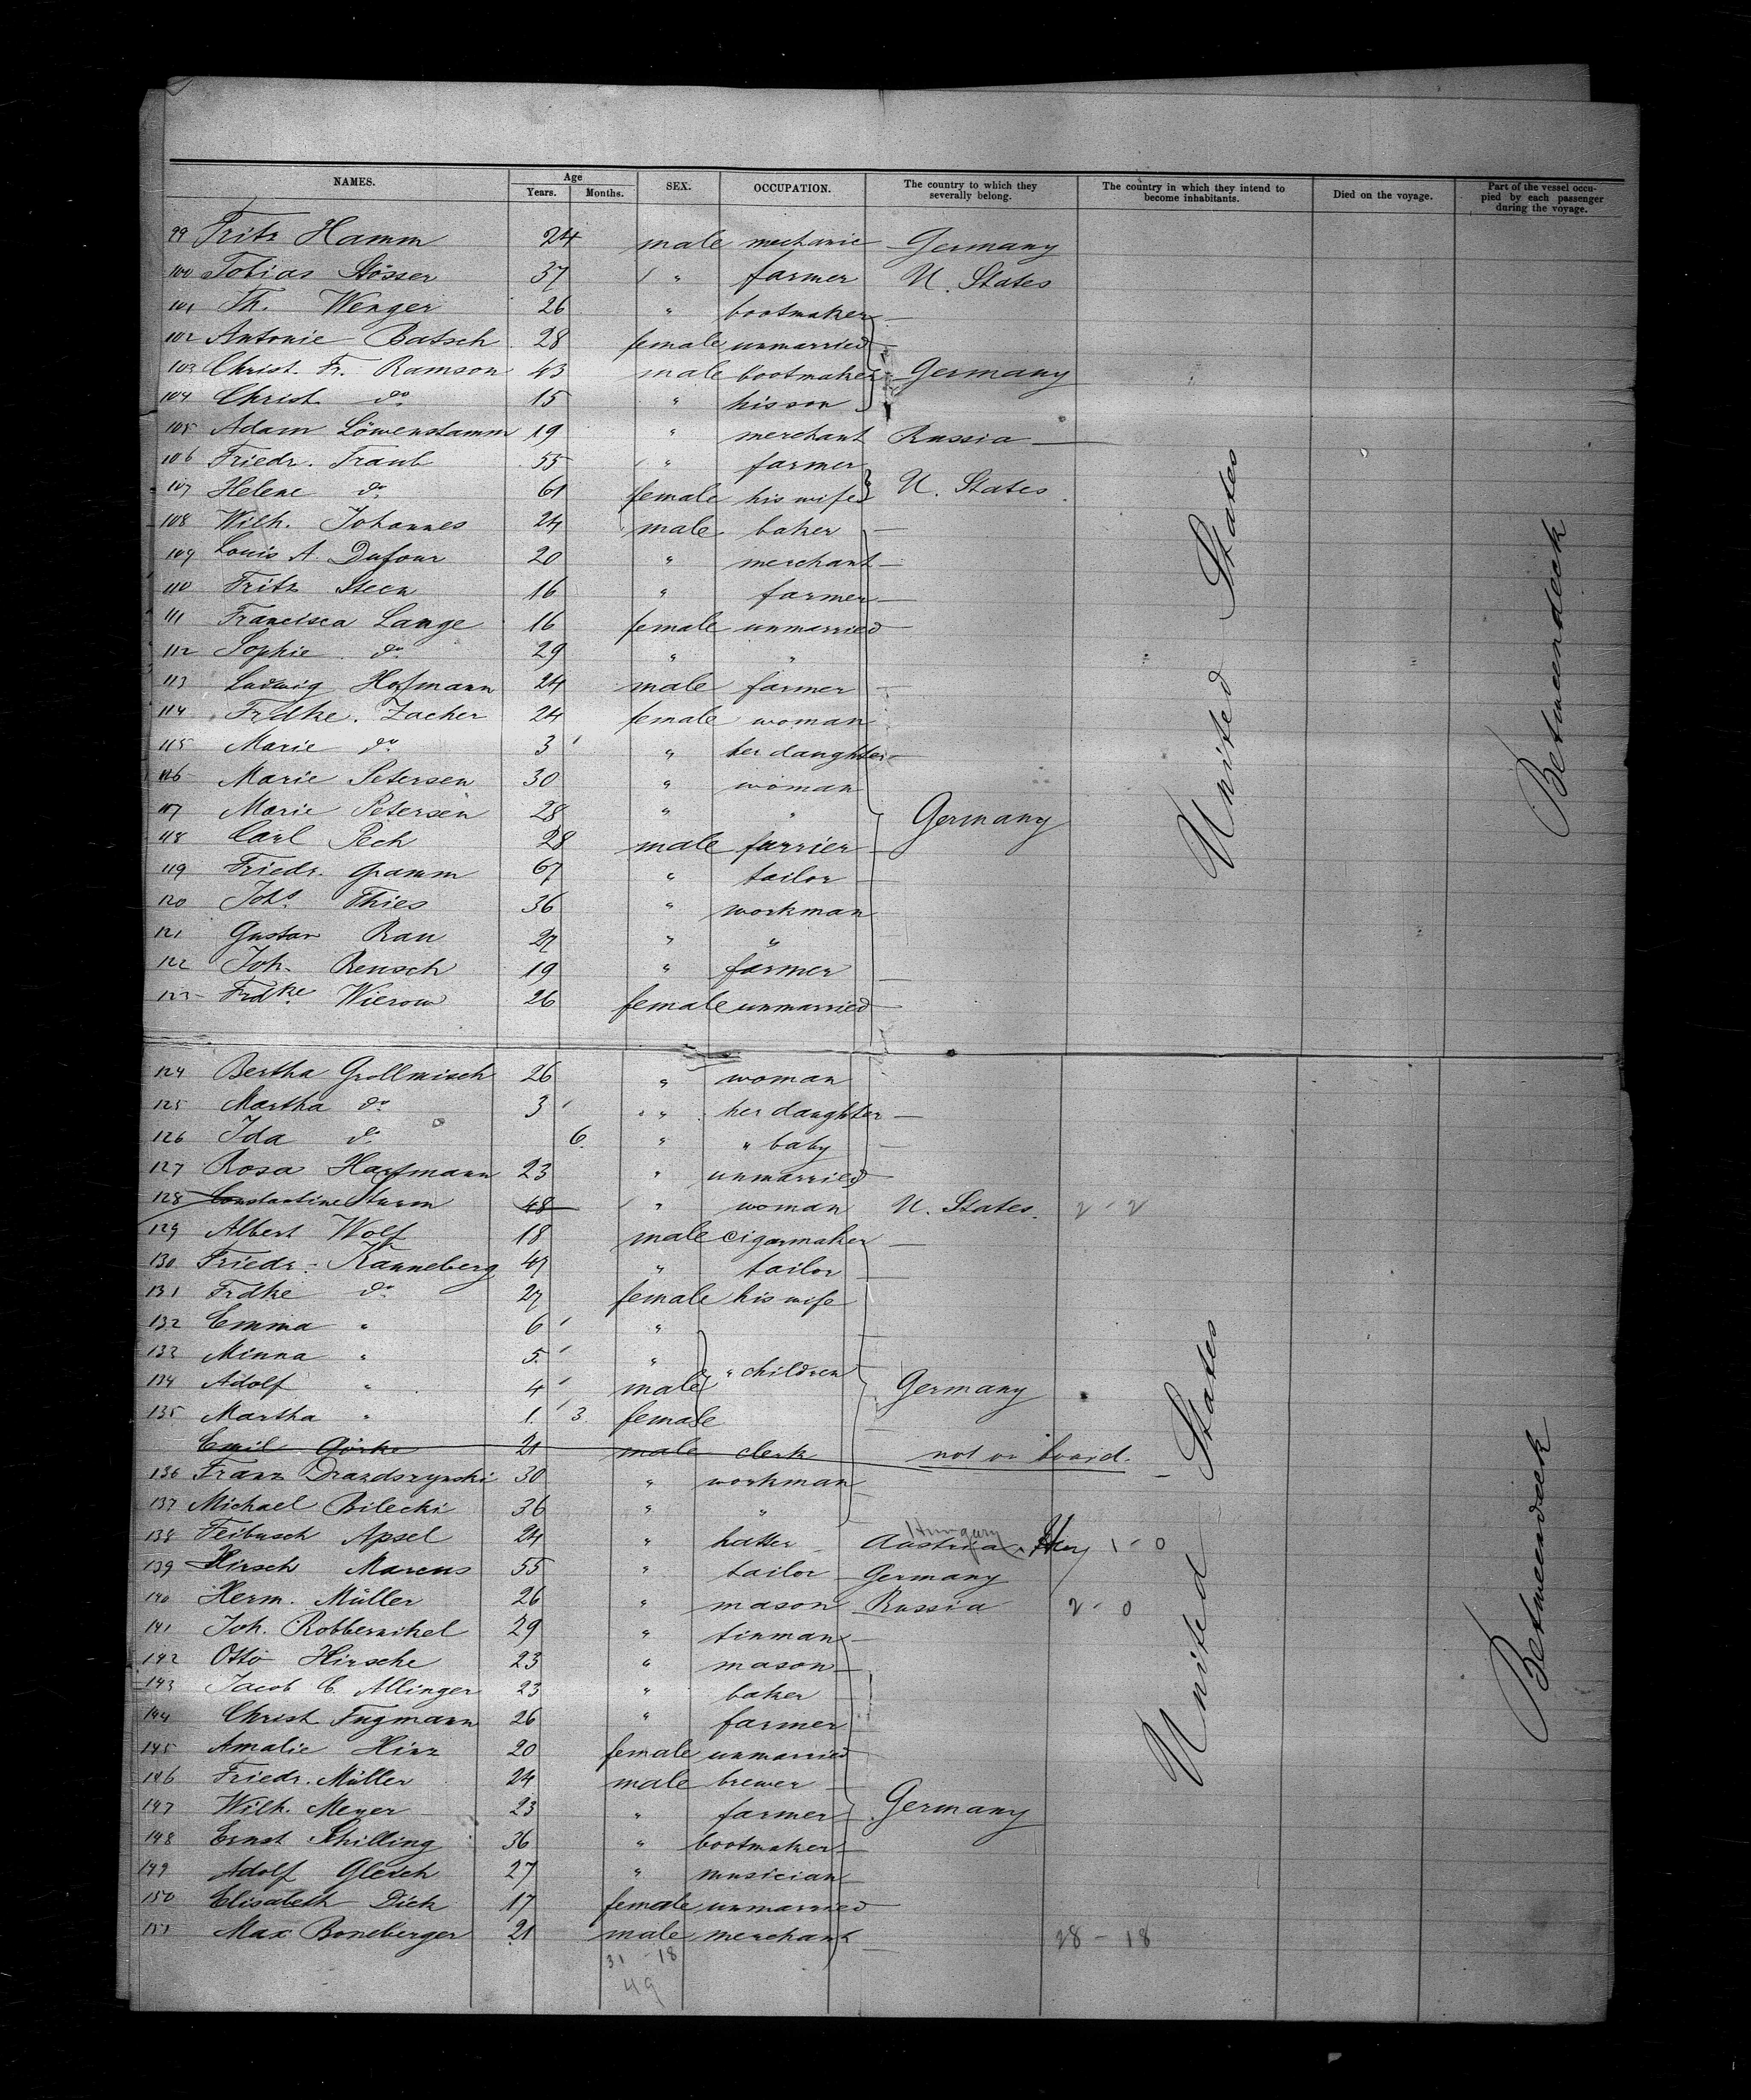 NAMES. Age SEX. OCCUPATION. The country to which they severally belong. The country in which they intend to become inhabitants. Died on the voyage. Part of the vessel occupied by each passenger during the voyage.
Years. Months.
99 Fritz Hamm 24 male mechanic Germany
100 Tobias Stösser 37 " farmer U. States
101 Th. Wenger 26 " bootmaker
102 Antonie Batsch 28 female unmarried
103 Christ. Fr. Ramson 43 male bootmaker Germany
104 Christ. do 15 " his son
105 Adam Löwenstamm 19 " merchant Russia
106 Friedr. Traub 55 " farmer
107 Helene do 61 female his wife U. States
108 Wilh. Johannes 24 male baker
109 Louis A. Dufour 20 " merchant
110 Fritz Steen 16 " farmer
111 Francisca Lange 16 female unmarried
112 Sophie do 29 " "
113 Ludwig Hofmann 24 male farmer
114 Frdke. Zacher 24 female woman
115 Marie do 3 " her daughter
116 Marie Petersen 30 " woman
117 Marie Petersen 28 " "
118 Carl Pech 28 male furrier Germany
119 Friedr. Gramm 67 " tailor
120 Johs. Thies 36 " workman
121 Gustav Rau 27 " "
122 Joh. Rensch 19 " farmer
123 Frdke. Wierow 26 female unmarried
United States
Betweendeck
124 Bertha Grollmisch 26 " woman
125 Martha do 3 " her daughter
126 Ida do 6 " " baby
127 Rosa Hartmann 23 " unmarried
128 Constantine Sturm 48 " woman U. States. 2 - 2
129 Albert Wolf 18 male cigarmaker
130 Friedr. Kanneberg 47 " tailor
131 Frdke do 27 female his wife
132 Emma " 6 "
133 Minna " 5 " " children
134 Adolf " 4 male Germany
135 Martha " 1 3 female
Emil Görke 21 male clerk not on board.
136 Franz 30 " workman
137 Michael Bilecki 36 " "
138 Feibusch Apsel 24 " hatter Austria Hungary 1 - 0
139 Hirsch Marcus 55 " tailor Germany
140 Herm. Müller 26 " mason Russia 2 - 0
141 Joh. 29 " tinman
142 Otto Hirsche 23 " mason
143 Jacob C. Allinger 23 " baker
144 Christ. Fugmann 26 " farmer
145 Amalie Hinz 20 female unmarried
146 Friedr. Müller 24 male brewer
147 Wilh. Meyer 23 " farmer Germany
148 Ernst Schilling 36 " bootmaker
149 Adolf Glesch 27 " musician
150 Elisabeth Dick 17 female unmarried
151 Max Boneberger 21 male merchant 28 - 18
31 - 18
49
United States
Betweendeck